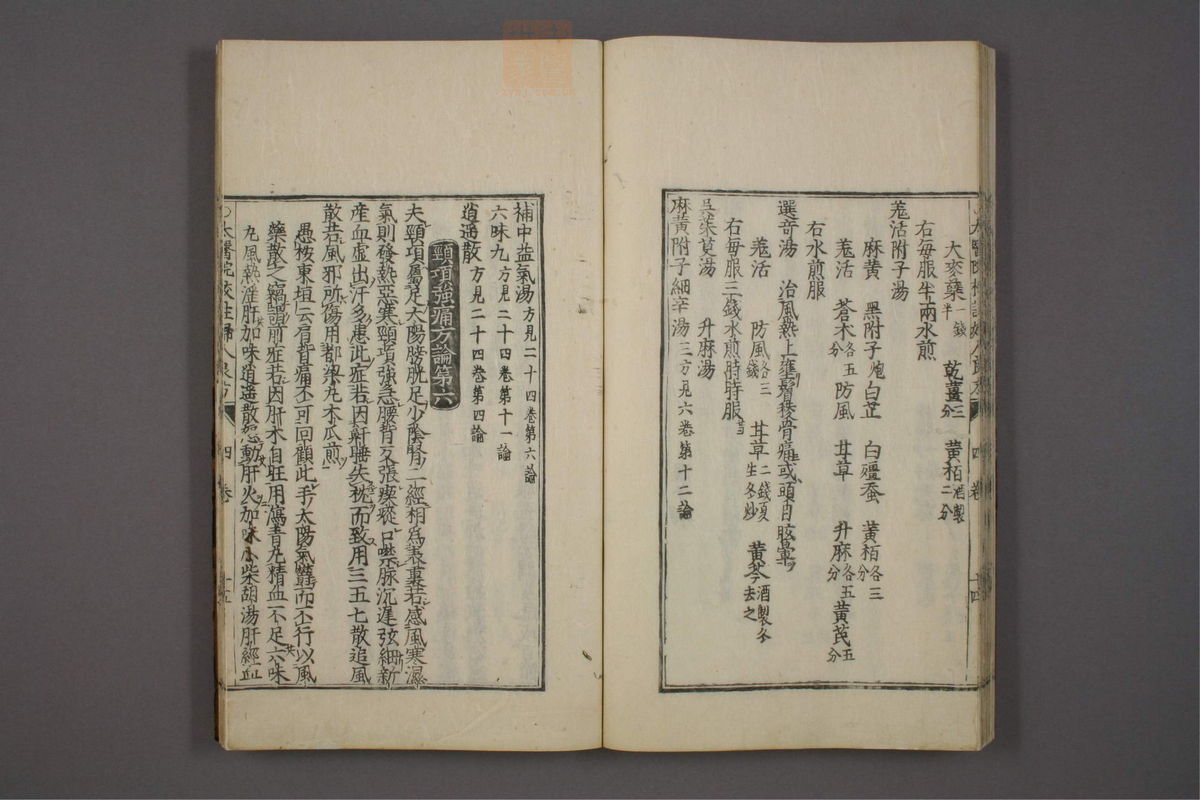 大麥蘗一錢半 乾薑三分 黃栢酒製二分
右每服半兩水煎
羗活附子湯
麻黃 黑附子炮 白芷 白殭蚕 黃栢各三分
羗活 蒼木各五分 防風 甘草 升麻各五分 黃芪五分
右水煎服
選奇湯 治風熱上壅眉稜骨痛或頭目眩暈
羗活 防風各三錢 甘草二錢夏生冬炒 黃芩酒製冬去之
右每服三錢水煎時時服
吳茱萸湯 升麻湯
麻黃附子細辛湯三方見六卷第十二論
四卷 十四
補中益氣湯方見二十四卷第六論
六味丸方見二十四卷第十一論
逍遥散方見二十四卷第四論
頸項強痛方論第六
夫頸項屬足太陽膀胱足少陰腎二經相爲表裏若感風寒濕
氣則發熱惡寒頸項強急腰背反張瘈瘲口噤脉沉遲弦細新
産血虚出汗多患此症若因挫閃失枕而致用三五七散追風
散若風邪所傷用都梁丸木瓜煎
愚桉東垣云肩背痛不可回顧此手太陽氣欝而不行以風
藥散之竊謂前症若因肝木自旺用瀉青丸精血不足六味
丸風熱淫肝加味逍遥散怒動肝火加味小柴胡湯肝經血
太醫院校註婦人良方 四卷 十五